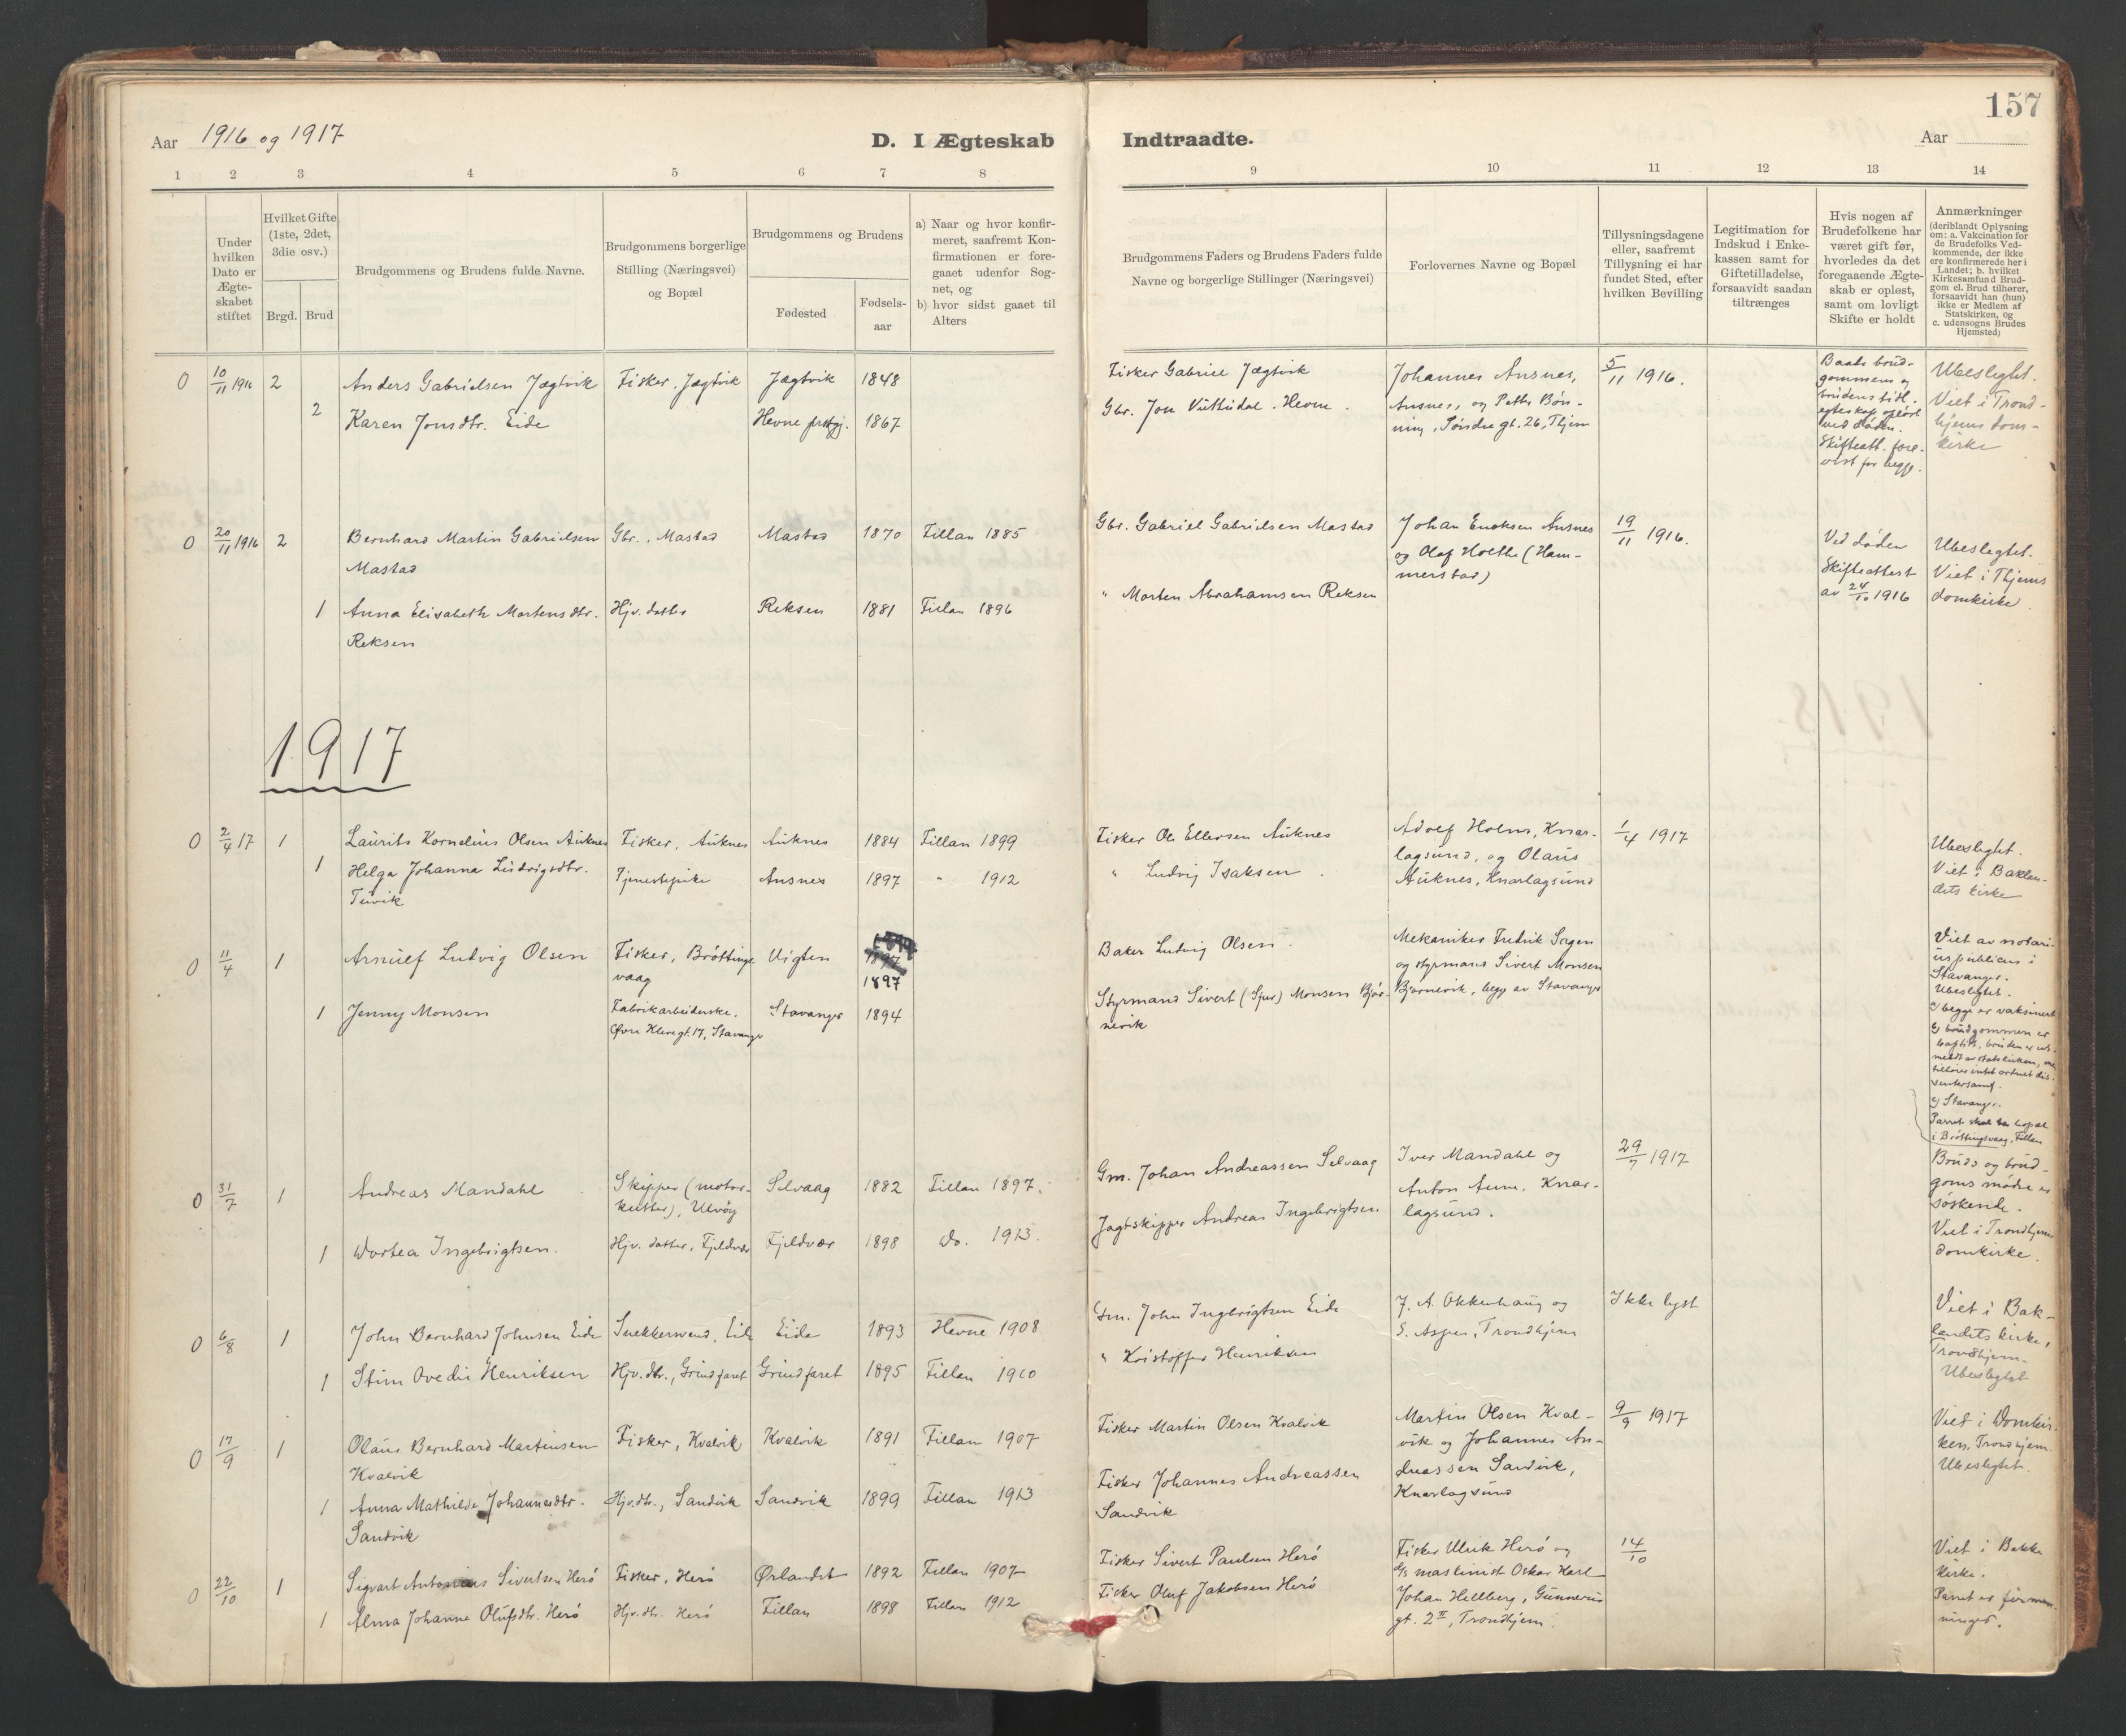 157
Aar 1916 og 1917
D. I Ægteskab Indtraadte.
Aar
1 2 3 4 5 6 7 8 9 10 11 12 13 14
Under hvilken Dato er Ægteskabet stiftet
Hvilket Gifte (1ste, 2det, 3die osv.)
Brgd. Brud
Brudgommens og Brudens fulde Navne.
Brudgommens borgerlige Stilling (Næringsvei) og Bopæl
Brudgommens og Brudens
Fødested
Fødselsaar
a) Naar og hvor konfirmeret, saafremt Konfirmationen er foregaaet udenfor Sognet, og
b) hvor sidst gaaet til Alters
Brudgommens Faders og Brudens Faders fulde Navne og borgerlige Stillinger (Næringsvei)
Forlovernes Navne og Bopæl
Tillysningsdagene eller, saafremt Tillysning ei har fundet Sted, efter hvilken Bevilling
Legitimation for Indskud i Enkekassen samt for Giftetilladelse, forsaavidt saadan tiltrænges
Hvis nogen af Brudefolkene har været gift før, hvorledes da det foregaaende Ægteskab er opløst, samt om lovligt Skifte er holdt
Anmærkninger (deriblandt Oplysning om: a. Vakcination for de Brudefolks Vedkommende, der ikke ere konfirmerede her i Landet; b. hvilket Kirkesamfund Brudgom el. Brud tilhører, forsaavidt han (hun) ikke er Medlem af Statskirken, og c. udensogns Brudes Hjemsted)
0 10/11 1916 2 Anders Gabrielsen Jægtvik Fisker. Jægtvik Jægtvik 1848
2 Karen Jonsdtr. Eide Hevne prstgj. 1867
Fisker Gabriel Jægtvik
Gbr. Jon Hevne.
Johannes Ansnes,
Ansnes, og Petter Bøn-
ning, Søndre gt. 26, Thjem
5/11 1916.
Baade brud-
gommens og
brudens tidl.
egteskap opløst
ved døden.
Skifteatt. fore-
vist for begge.
Ubeslegtet.
Viet i Trond-
hjems dom-
kirke
0 20/11 1916 2 Bernhard Martin Gabrielsen Gbr., Mastad Mastad 1870 Fillan 1885
Mastad
1 Anna Elisabeth Mortensdtr. Hjv. datter Reksen 1881 Fillan 1896
Reksen
Gbr. Gabriel Gabrielsen Mastad
" Morten Abrahamsen Reksen
Johan Enoksen Ansnes
og Olaf Holthe (Ham-
merstad)
19/11 1916.
Ved døden
Skifteattest
av 24/10 1916
Ubeslegtet.
Viet i Thjems
domkirke.
1917
0 2/4 17 1 Laurits Kornelius Olsen Auknes Fisker, Auknes Auknes 1884 Fillan 1899
1 Helga Johanna Ludvigsdtr. Tjenestepike Ansnes 1897 " 1912
Tuvik
Fisker Ole Ellersen Auknes
" Ludvig Isaksen.
Adolf Holm, Knar-
lagsund, og Olaus
Auknes, Knarlagsund
1/4 1917
Ubeslegtet.
Viet i Baklan-
dets kirke
0 11/4 1 Arnulf Ludvig Olsen Fisker, Bröttings- Vigten 1897
vaag 1897
1 Jenny Monsen Fabrikarbeiderske. Stavanger 1894
Øvre Klevegt. 17, Stavanger
Baker Ludvig Olsen.
Styrmand Sivert (Sjur) Monsen Bjør-
nevik
Mekaniker Fredrik Sagen
og styrmand Sivert Monsen
Bjørnevik, begge av Stavanger
Viet av notari-
us publicus i
Stavanger.
Ubeslegtet.
a) begge er vaksinert
b) brudgommen er
baptist, bruden er ut-
meldt av statskirken, men
tilhører intet ordnet dis-
sentersamf.
c) Stavanger.
Parret skal ha bopæl
i Bröttingsvaag, Fillan
0 31/7 1 Andreas Mandahl Skipper (motor- Selvaag 1882 Fillan 1897.
kutter), Ulvøy
1 Dortea Ingebrigtsen. Hjv. datter, Fjeldvær Fjeldvær 1898 do. 1913.
Gm. Johan Andreassen Selvaag
Jagtskipper Andreas Ingebrigtsen
Iver Mandahl og
Anton Aune. Knar-
lagsund.
29/7 1917
Bruds og brud-
goms mødre er
søskende.
Viet i Trondhjems
domkirke.
0 6/8 1 John Bernhard Johnsen Eide Snekkersvend, Eide Eide 1893 Hevne 1908
1 Stine Ovedie Henriksen Hjv. dtr., Grindfaret Grindfaret 1895 Fillan 1910
Gm. John Ingebrigtsen Eide
" Kristoffer Henriksen
J. A. Okkenhaug og
E. Aspen, Trondhjem
Ikke lyst
Viet i Bak-
landets kirke,
Trondhjem.
Ubeslegtet
0 17/9 1 Olaus Bernhard Martinsen Fisker, Kvalvik Kvalvik 1891 Fillan 1907
Kvalvik
1 Anna Mathilde Johannesdtr. Hjv. dtr., Sandvik Sandvik 1899 Fillan 1913
Sandvik
Fisker Martin Olsen Kvalvik
Fisker Johannes Andreassen
Sandvik
Martin Olsen Kval-
vik og Johannes An-
dreassen Sandvik,
Knarlagsund
9/9 1917
Viet i Domkir-
ken, Trondhjem
Ubeslegtet.
0 22/10 1 Sigvart Antonius Sivertsen Herö Fisker, Herö Ørlandet 1892 Fillan 1907
1 Alma Johanne Olufsdtr. Herö Hjv. dtr. Herö Fillan 1898 Fillan 1912
Fisker Sivert Paulsen Herö
Fisker Oluf Jakobsen Herö
Fisker Ulrik Herö og
maskinist Oskar Karl
Johan Hellberg, Gunnerus
gt. 2 II, Trondhjem.
14/10
Viet i Bakke
kirke.
Parret er fermen-
ninger.